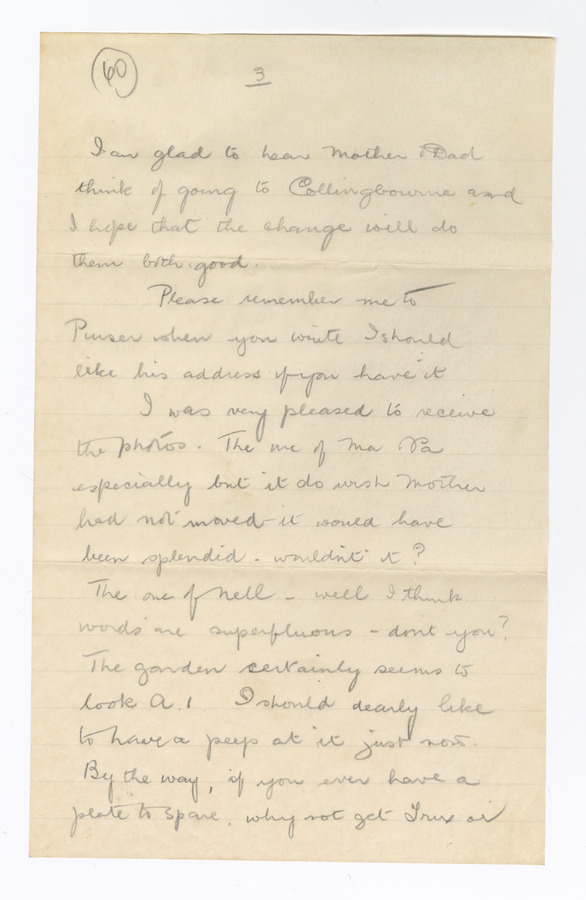 60
3
I am glad to hear Mother & Dad
think of going to Collingbourne and
I hope that the change will do
them both good.
Please remember me to
Purser when you write I should
like his address if you have it
I was very pleased to receive
the photos. The one of Ma & Pa
especially but it do wish Mother
had not moved - it would have
been splendid - wouldn't it?
The one of Nell - well I think
words are superfluous - dont you?
The garden certainly seems to
look A.1 I should dearly like
to have a peep at it just now.
By the way, if you ever have a
plate to spare, why not get Trix or